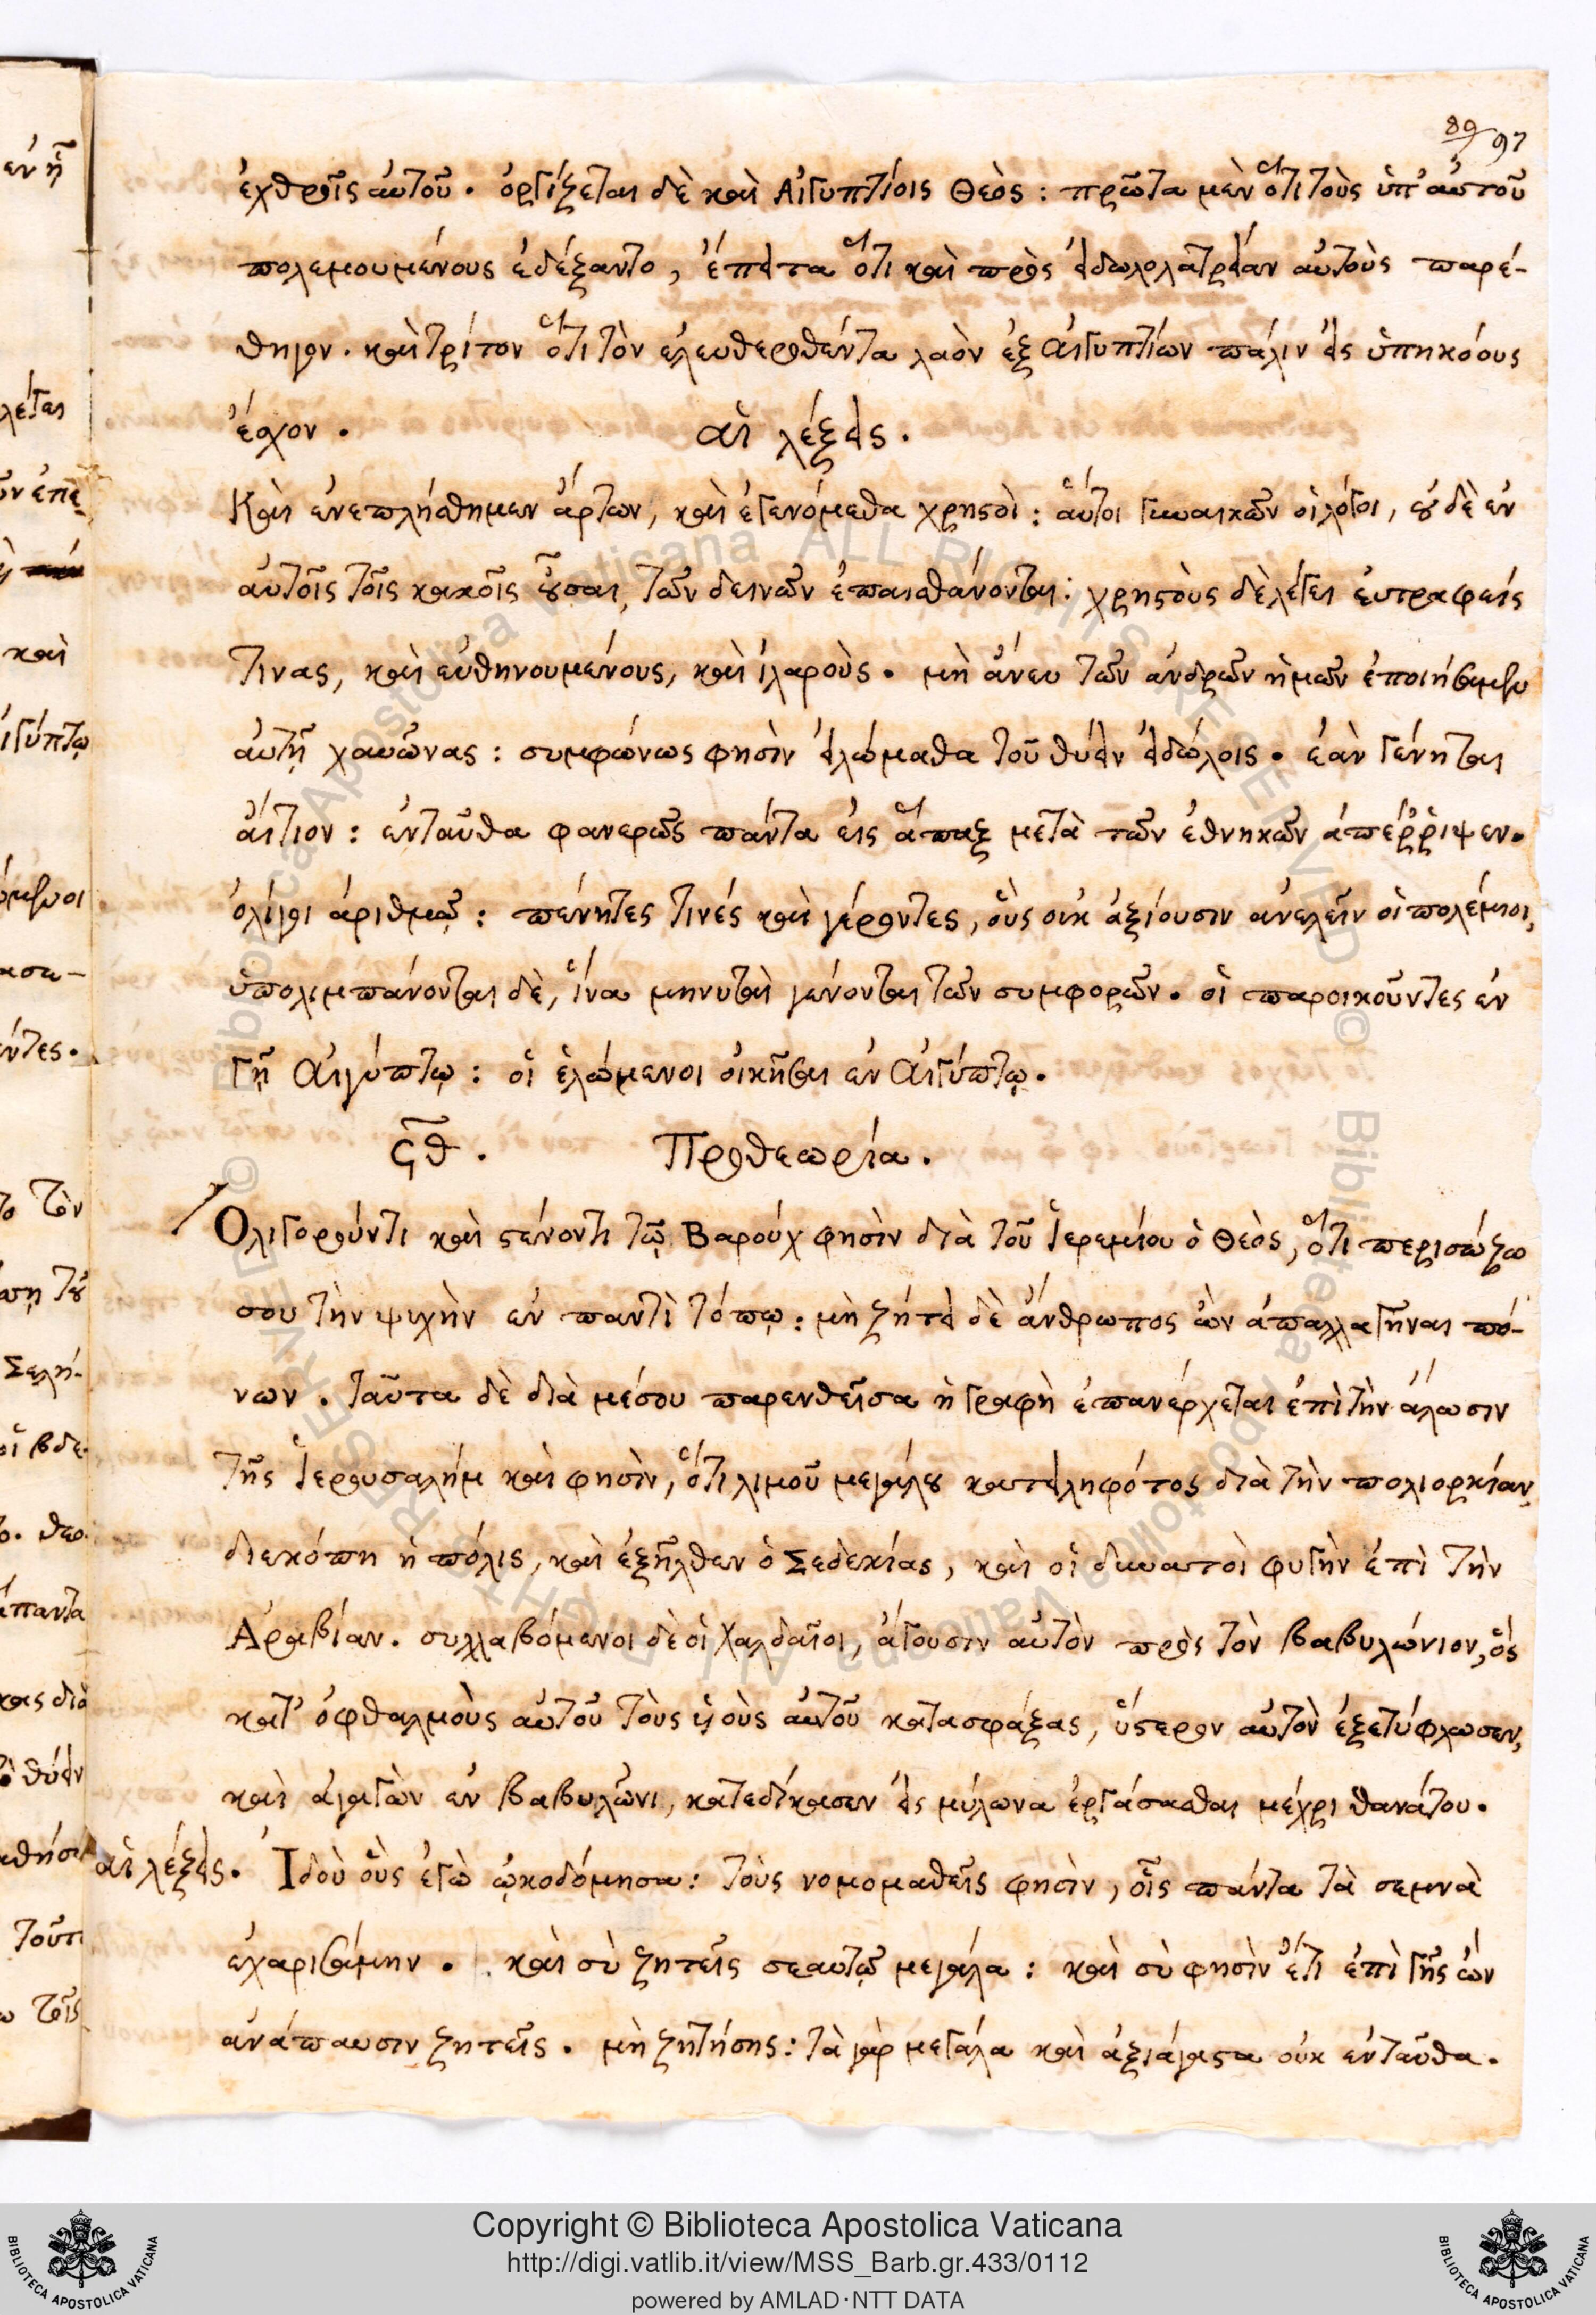 89
97
ἐχθροῖς αὐτοῦ. ὀργίζεται δὲ καὶ Αἰγυπτίοις Θεὸς: πρῶτα μὲν ὅτι τοὺς ὑπ' αὐτοῦ
πολεμουμένους ἐδέξαντο, ἔπειτα ὅτι καὶ πρὸς εἰδωλολατρείαν αὐτοὺς παρέ-
θηγον. καὶ τρίτον ὅτι τὸν ἐλευθερωθέντα λαὸν ἐξ Αἰγυπτίων πάλιν εἰς ὑπηκόους
ἔσχον. αἱ λέξεις.
Καὶ ἐνεπλήσθημεν ἄρτων, καὶ ἐγενόμεθα χρηστοὶ: αὗτοι γυναικῶν οἱ λόγοι, οὐδὲ ἐν
αὐτοῖς τοῖς κακοῖς οὖσαι, τῶν δεινῶν ἐπαισθάνονται: χρηστοὺς δὲ λέγει εὐτραφεῖς
τινας, καὶ εὐθηνουμένους, καὶ ἱλαροὺς. μὴ ἄνευ τῶν ἀνδρῶν ἡμῶν ἐποιήσαμεν
αὐτῇ χαυῶνας: συμφώνως φησὶν εἰλώμεθα τοῦ θύειν εἰδώλοις. ἐὰν γένηται
αἴτιον: ἐνταῦθα φανερῶς πάντα εἰς ἅπαξ μετὰ τῶν ἐθνηκῶν ἀπέῤῥιψεν.
ὀλίγοι ἀριθμῷ: πένητες τινές καὶ γέροντες, οὓς οὐκ ἀξίουσιν ἀνελεῖν οἱ πολέμιοι,
ὑπολιμπάνονται δὲ, ἵνα μηνυταὶ γένονται τῶν συμφορῶν. οἱ παροικοῦντες ἐν
γῇ Αἰγύπτῳ: οἱ ἑλώμενοι οἰκῆσαι ἐν Αἰγύπτῳ.
ϛθ. Προθεωρία.
Ὀλιγοροῦντι καὶ στένοντι τῷ Βαρούχ φησὶν διὰ τοῦ Ἱερεμίου ὁ Θεὸς, ὅτι περισώζω
σου τὴν ψυχὴν ἐν παντὶ τόπῳ: μὴ ζήτει δὲ ἄνθρωπος ὢν ἀπαλλαγῆναι πό-
νων. ταῦτα δὲ διὰ μέσου παρενθεῖσα ἡ γραφὴ ἐπανέρχεται ἐπὶ τὴν ἅλωσιν
τῆς Ἱερουσαλήμ καὶ φησὶν, ὅτι λιμοῦ μεγάλου κατειληφότος διὰ τὴν πολιορκίαν,
διεκόπη ἡ πόλις, καὶ ἐξῆλθεν ὁ Σεδεκίας, καὶ οἱ δυνατοὶ φυγὴν ἐπὶ τὴν
Ἀραβίαν. συλλαβόμενοι δὲ οἱ Χαλδαῖοι, ἄγουσιν αὐτὸν πρὸς τὸν Βαβυλώνιον, ὃς
κατ' ὀφθαλμοὺς αὐτοῦ τοὺς υἱοὺς αὐτοῦ κατασφάξας, ὕστερον αὐτὸν ἐξετύφλωσεν,
καὶ ἀγαγὼν ἐν Βαβυλῶνι, κατεδίκασεν εἰς μύλωνα ἐργάσασθαι μέχρι θανάτου.
αἱ λέξεις. Ἰδοὺ οὓς ἐγὼ ᾠκοδόμησα: τοὺς νομομαθεῖς φησὶν, οἷς πάντα τὰ σεμνὰ
ἐχαρισάμην. καὶ σὺ ζητεῖς σεαυτῷ μεγάλα: καὶ σὺ φησὶν ἔτι ἐπὶ γῆς ὢν
ἀνάπαυσιν ζητεῖς. μὴ ζητήσης: τὰ γὰρ μεγάλα καὶ ἀξιάγαστα οὐκ ἐνταῦθα.
Copyright © Biblioteca Apostolica Vaticana
http://digi.vatlib.it/view/MSS_Barb.gr.433/0112
powered by AMLAD·NTT DATA
BIBLIOTECA APOSTOLICA VATICANA
BIBLIOTECA APOSTOLICA VATICANA